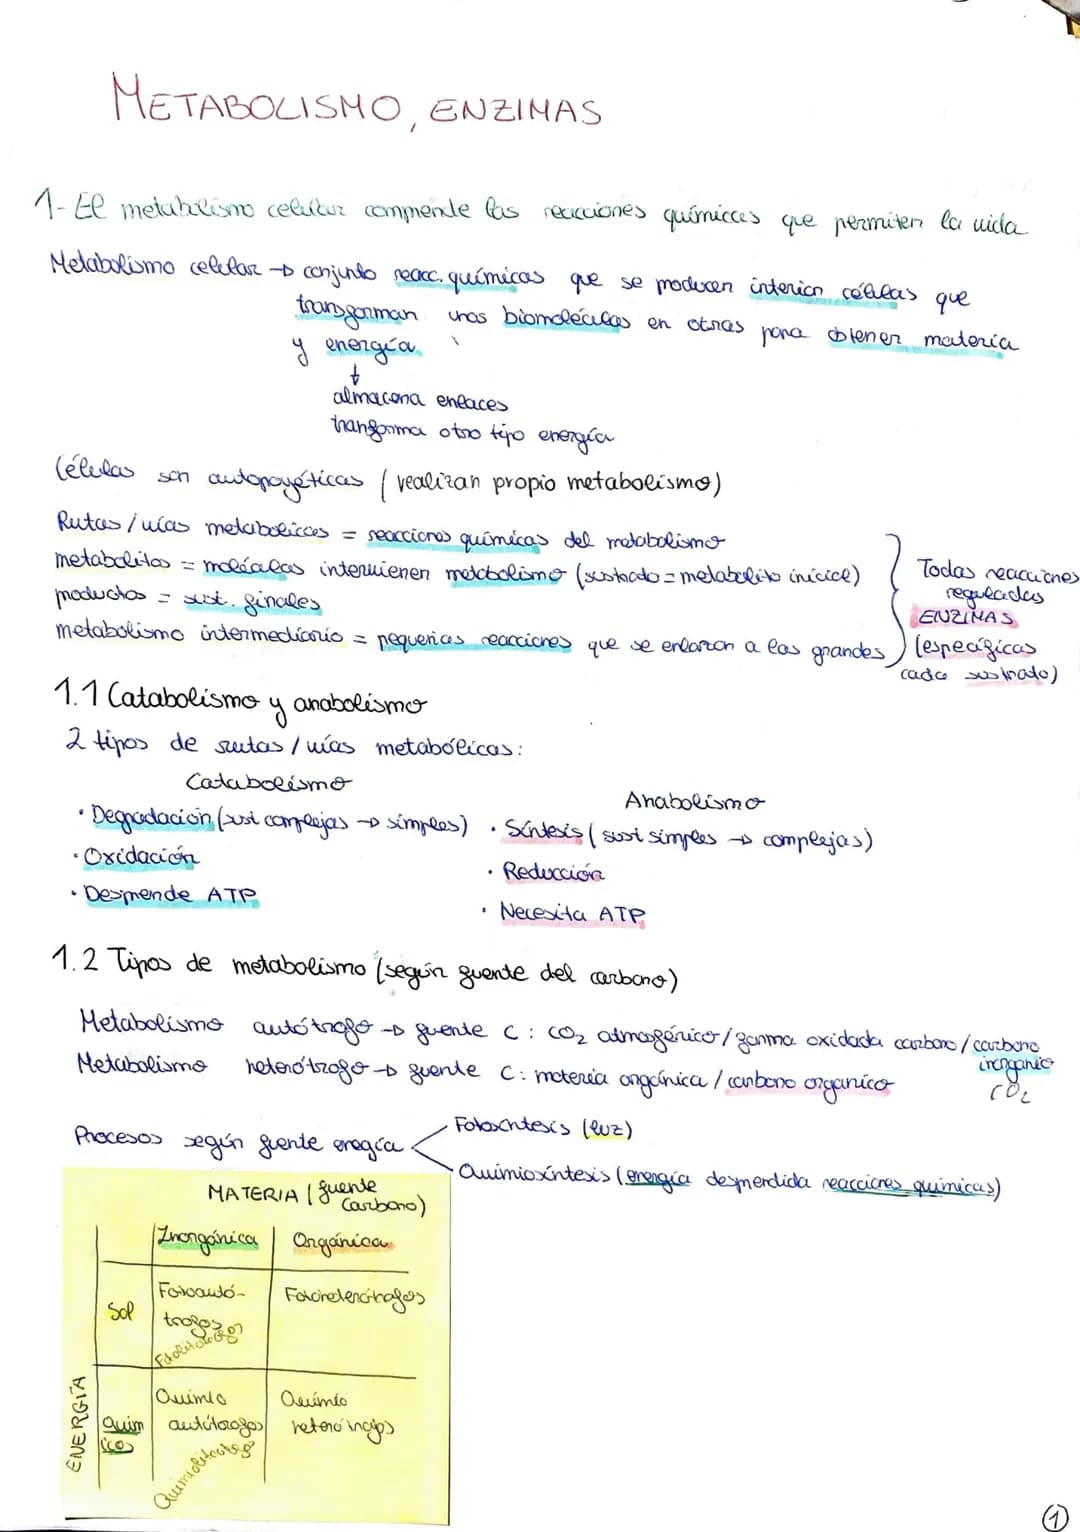 METABOLISMO, ENZIMAS
1- El metabolismo celular comprende las reacciones químicas que permiten la vida
Metabolismo celular → conjunto reacc. químicas que se producen interior células que
transforman unas biomoléculas en otras para obtener materia
y energía
↓
almacena enlaces
transforma otro tipo energía
Células son autopoyéticas (realizan propio metabolismo)
Rutas/vías metabolicas = reacciones químicas del metabolismo
metabolitos = moléculas intervienen metabolismo (sustrato = metabolito inicial)
productos = sust. finales
metabolismo intermediario = pequeñas reacciones que se enlazan a las grandes
Todas reacciones
reguladas
ENZIMAS
(específicas
cada sustrato)
1.1 Catabolismo y anabolismo
2 tipos de rutas/vías metabólicas:
Catabolismo
· Degradación (sust complejas → simples)
· Oxidación
· Desprende ATP
Anabolismo
· Síntesis (sust simples → complejas)
· Reducción
· Necesita ATP
1.2 Tipos de metabolismo (según fuente del carbono)
Metabolismo autótrofo → fuente C: CO2 atmosférico/forma oxidada carbono/carbono
inorganico
CO2
Metabolismo heterótrofo → fuente C: materia orgánica/carbono organico
Procesos según fuente energía
Fotosíntesis (luz)
Quimiosíntesis (energía desprendida reacciones quimicas)
MATERIA (fuente
Carbono)
Inorgánica Orgánica
ENERGÍA
Sol
Fotoautó-
trofos
Fotoheterótrofos
Quím
icos
Quimio
autótrofos
Químio
heterótrofos
1